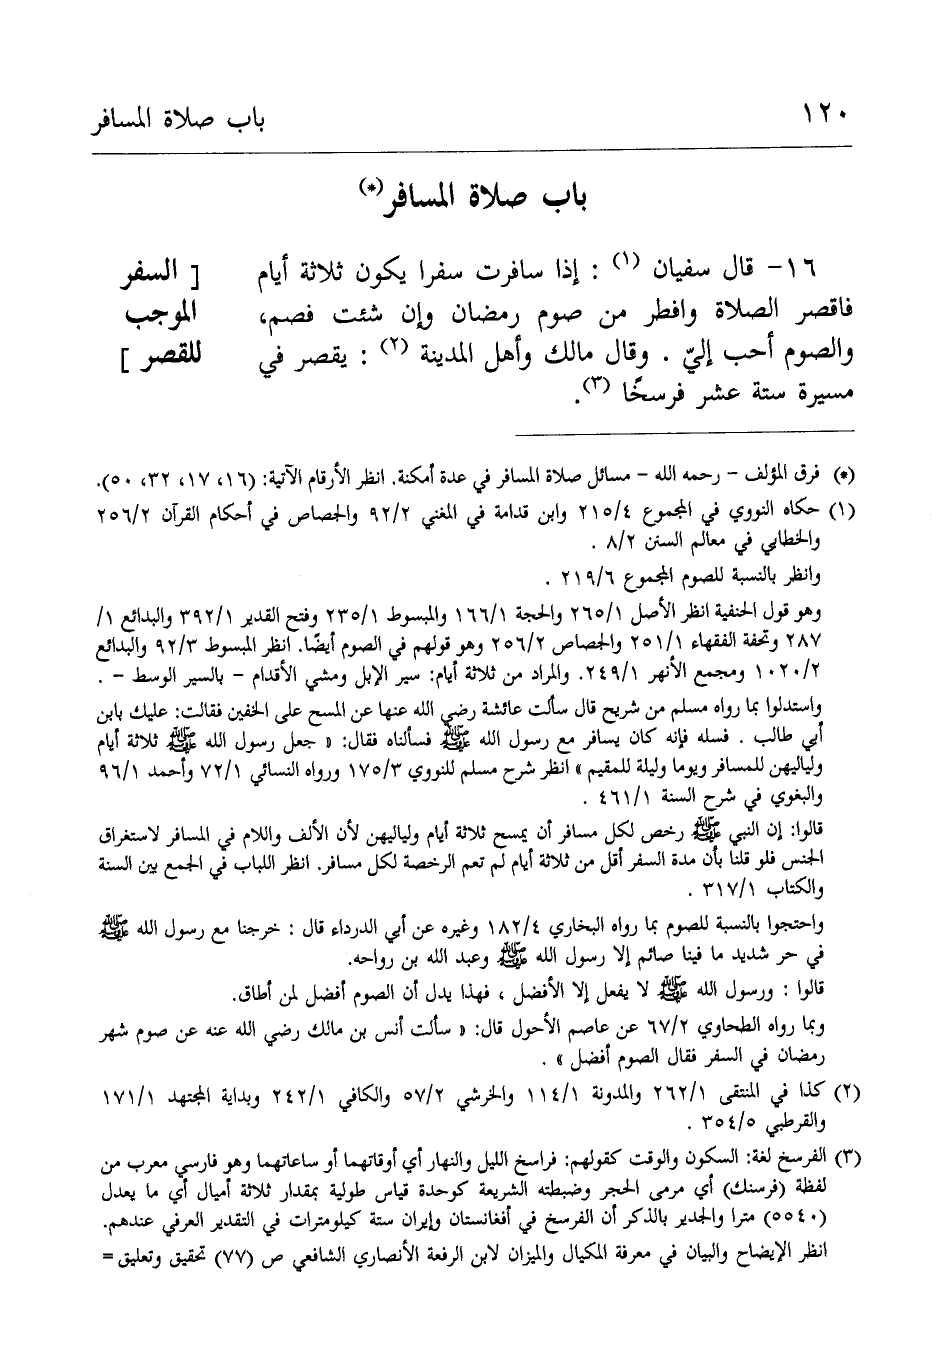 ١٢٠
باب صلاة المسافر
باب صلاة المسافر (*)
١٦- قال سفيان (١) : إذا سافرت سفرا يكون ثلاثة أيام
فاقصر الصلاة وافطر من صوم رمضان وإن شئت فصم،
والصوم أحب إليّ . وقال مالك وأهل المدينة (٢) : يقصر في
مسيرة ستة عشر فرسخًا (٣).
[ السفر
الموجب
للقصر ]
(*) فرق المؤلف - رحمه الله - مسائل صلاة المسافر في عدة أمكنة. انظر الأرقام الآتية: (١٦، ١٧، ٣٢، ٥٠).
(١) حكاه النووي في المجموع ٢١٥/٤ وابن قدامة في المغني ٩٢/٢ والجصاص في أحكام القرآن ٢٥٦/٢
والخطابي في معالم السنن ٨/٢ .
وانظر بالنسبة للصوم المجموع ٢١٩/٦ .
وهو قول الحنفية انظر الأصل ٢٦٥/١ والحجة ١٦٦/١ والمبسوط ٢٣٥/١ وفتح القدير ٣٩٢/١ والبدائع ١/
٢٨٧ وتحفة الفقهاء ٢٥١/١ والجصاص ٢٥٦/٢ وهو قولهم في الصوم أيضًا. انظر المبسوط ٩٢/٣ والبدائع
١٠٢٠/٢ ومجمع الأنهر ٢٤٩/١. والمراد من ثلاثة أيام: سير الإبل ومشي الأقدام - بالسير الوسط - .
واستدلوا بما رواه مسلم من شريح قال سألت عائشة رضي الله عنها عن المسح على الخفين فقالت: عليك بابن
أبي طالب . فسله فإنه كان يسافر مع رسول الله ﷺ فسألناه فقال: « جعل رسول الله ﷺ ثلاثة أيام
ولياليهن للمسافر ويوما وليلة للمقيم » انظر شرح مسلم للنووي ١٧٥/٣ ورواه النسائي ٧٢/١ وأحمد ٩٦/١
والبغوي في شرح السنة ٤٦١/١ .
قالوا: إن النبي ﷺ رخص لكل مسافر أن يمسح ثلاثة أيام ولياليهن لأن الألف واللام في المسافر لاستغراق
الجنس فلو قلنا بأن مدة السفر أقل من ثلاثة أيام لم تعم الرخصة لكل مسافر. انظر اللباب في الجمع بين السنة
والكتاب ٣١٧/١ .
واحتجوا بالنسبة للصوم بما رواه البخاري ١٨٢/٤ وغيره عن أبي الدرداء قال : خرجنا مع رسول الله ﷺ
في حر شديد ما فينا صائم إلا رسول الله ﷺ وعبد الله بن رواحه.
قالوا : ورسول الله ﷺ لا يفعل إلا الأفضل ، فهذا يدل أن الصوم أفضل لمن أطاق.
وبما رواه الطحاوي ٦٧/٢ عن عاصم الأحول قال: « سألت أنس بن مالك رضي الله عنه عن صوم شهر
رمضان في السفر فقال الصوم أفضل » .
(٢) كذا في المنتقى ٢٦٢/١ والمدونة ١١٤/١ والخرشي ٥٧/٢ والكافي ٢٤٢/١ وبداية المجتهد ١٧١/١
والقرطبي ٣٥٤/٥ .
(٣) الفرسخ لغة: السكون والوقت كقولهم: فراسخ الليل والنهار أي أوقاتهما أو ساعاتهما وهو فارسي معرب من
لفظة (فرسنك) أي مرمى الحجر وضبطته الشريعة كوحدة قياس طولية بمقدار ثلاثة أميال أي ما يعدل
(٥٥٤٠) مترا والجدير بالذكر أن الفرسخ في أفغانستان وإيران ستة كيلومترات في التقدير العرفي عندهم.
انظر الإيضاح والبيان في معرفة المكيال والميزان لابن الرفعة الأنصاري الشافعي ص (٧٧) تحقيق وتعليق =